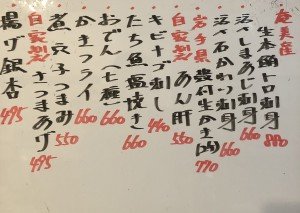 奄美産
生本鮪トロ刺身 880
活〆石かわり刺身 660
活〆しまあじ刺身 660
岩手県殻付生かき(内) 770
自家製あん肝
キビナゴ刺し 440
たち魚塩焼き 660
おでん(七種) 660
かきフライ 660
煮穴子つまみ 550
自家製さつまあげ 495
揚げ銀杏 495